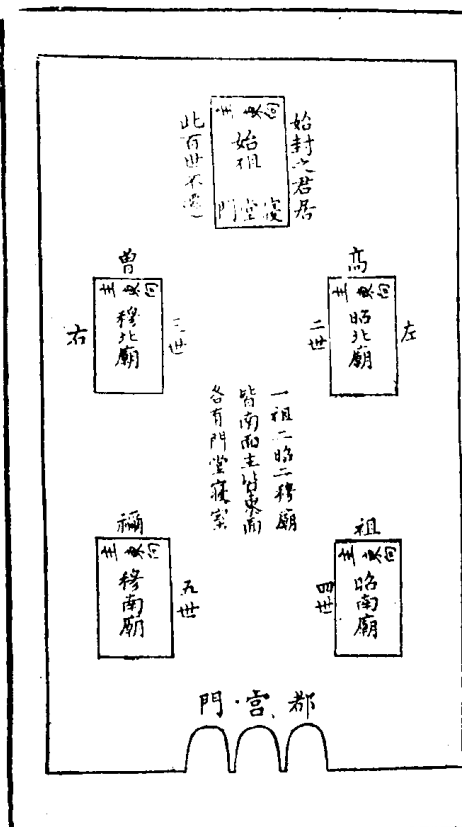 始封之君居
主東向
始祖
門堂寢
此百世不遷
高
主東向
昭北廟
左
二世
曾
主東向
穆北廟
三世
右
一祖二昭二穆廟
皆南面主皆東面
各有門堂寢室
祖
主東向
昭南廟
四世
禰
主東向
穆南廟
五世
門·宮、都